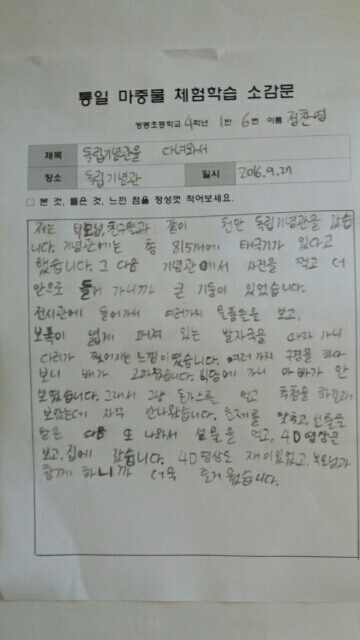 통일 마중물 체험학습 소감문
쌍봉초등학교 4학년 1반 6번 이름 정찬영
제목 독립기념관을 다녀와서
장소 독립기념관 일시 2016.9.27
□ 본 것, 들은 것, 느낀 점을 정성껏 적어보세요.
저는 부모님, 친구들과 같이 천안 독립기념관을 갔습
니다. 기념관에는 총 815개에 태극기가 있다고
했습니다. 그 다음 기념관에서 사진을 찍고 더
안으로 들어 가니까 큰 기둥이 있었습니다.
전시관에 들어가서 여러가지 물품들을 보고,
보폭이 넓게 퍼져 있는 발자국을 따라 가니
다리가 찢어지는 느낌이였습니다. 여러 가지 구경을 하다
보니 배가 고파졌습니다. 식당에 가니 아빠가 안
보였습니다. 그래서 그냥 돈가스를 먹고 추첨을 하길래
보았는데 자꾸 안나왔습니다. 문제를 맞추고, 선물을
받은 다음 또 나와서 선물을 먹고, 4D영상은
보고, 집에 갔습니다. 4D영상도 재미있었고, 부모님과
함께 하니까 더욱 즐거웠습니다.